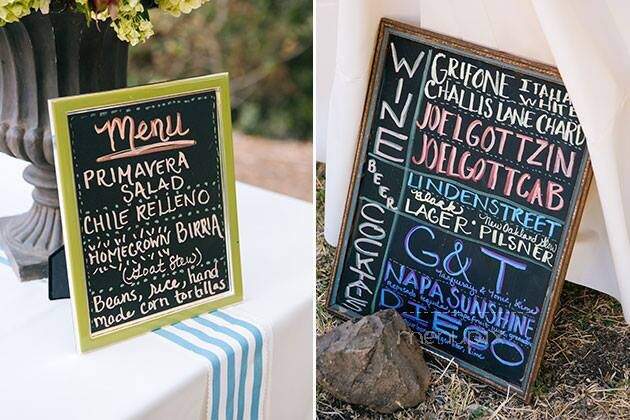 Menu
PRIMAVERA
SALAD
CHILE RELLENO
HOMEGROWN BIRRIA
(Goat Stew)
Beans, rice, hand
made corn tortillas
WINE
GRIFONE ITALIAN
WHITE
CHALLIS LANE CHARD
JOEL GOTT ZIN
JOEL GOTT CAB
BEER
LINDEN STREET
Black New Oakland Glow
LAGER · PILSNER
COCKTAILS
G&T
Tanqueray & tonic, lime
NAPA SUNSHINE
DIEGO
lime